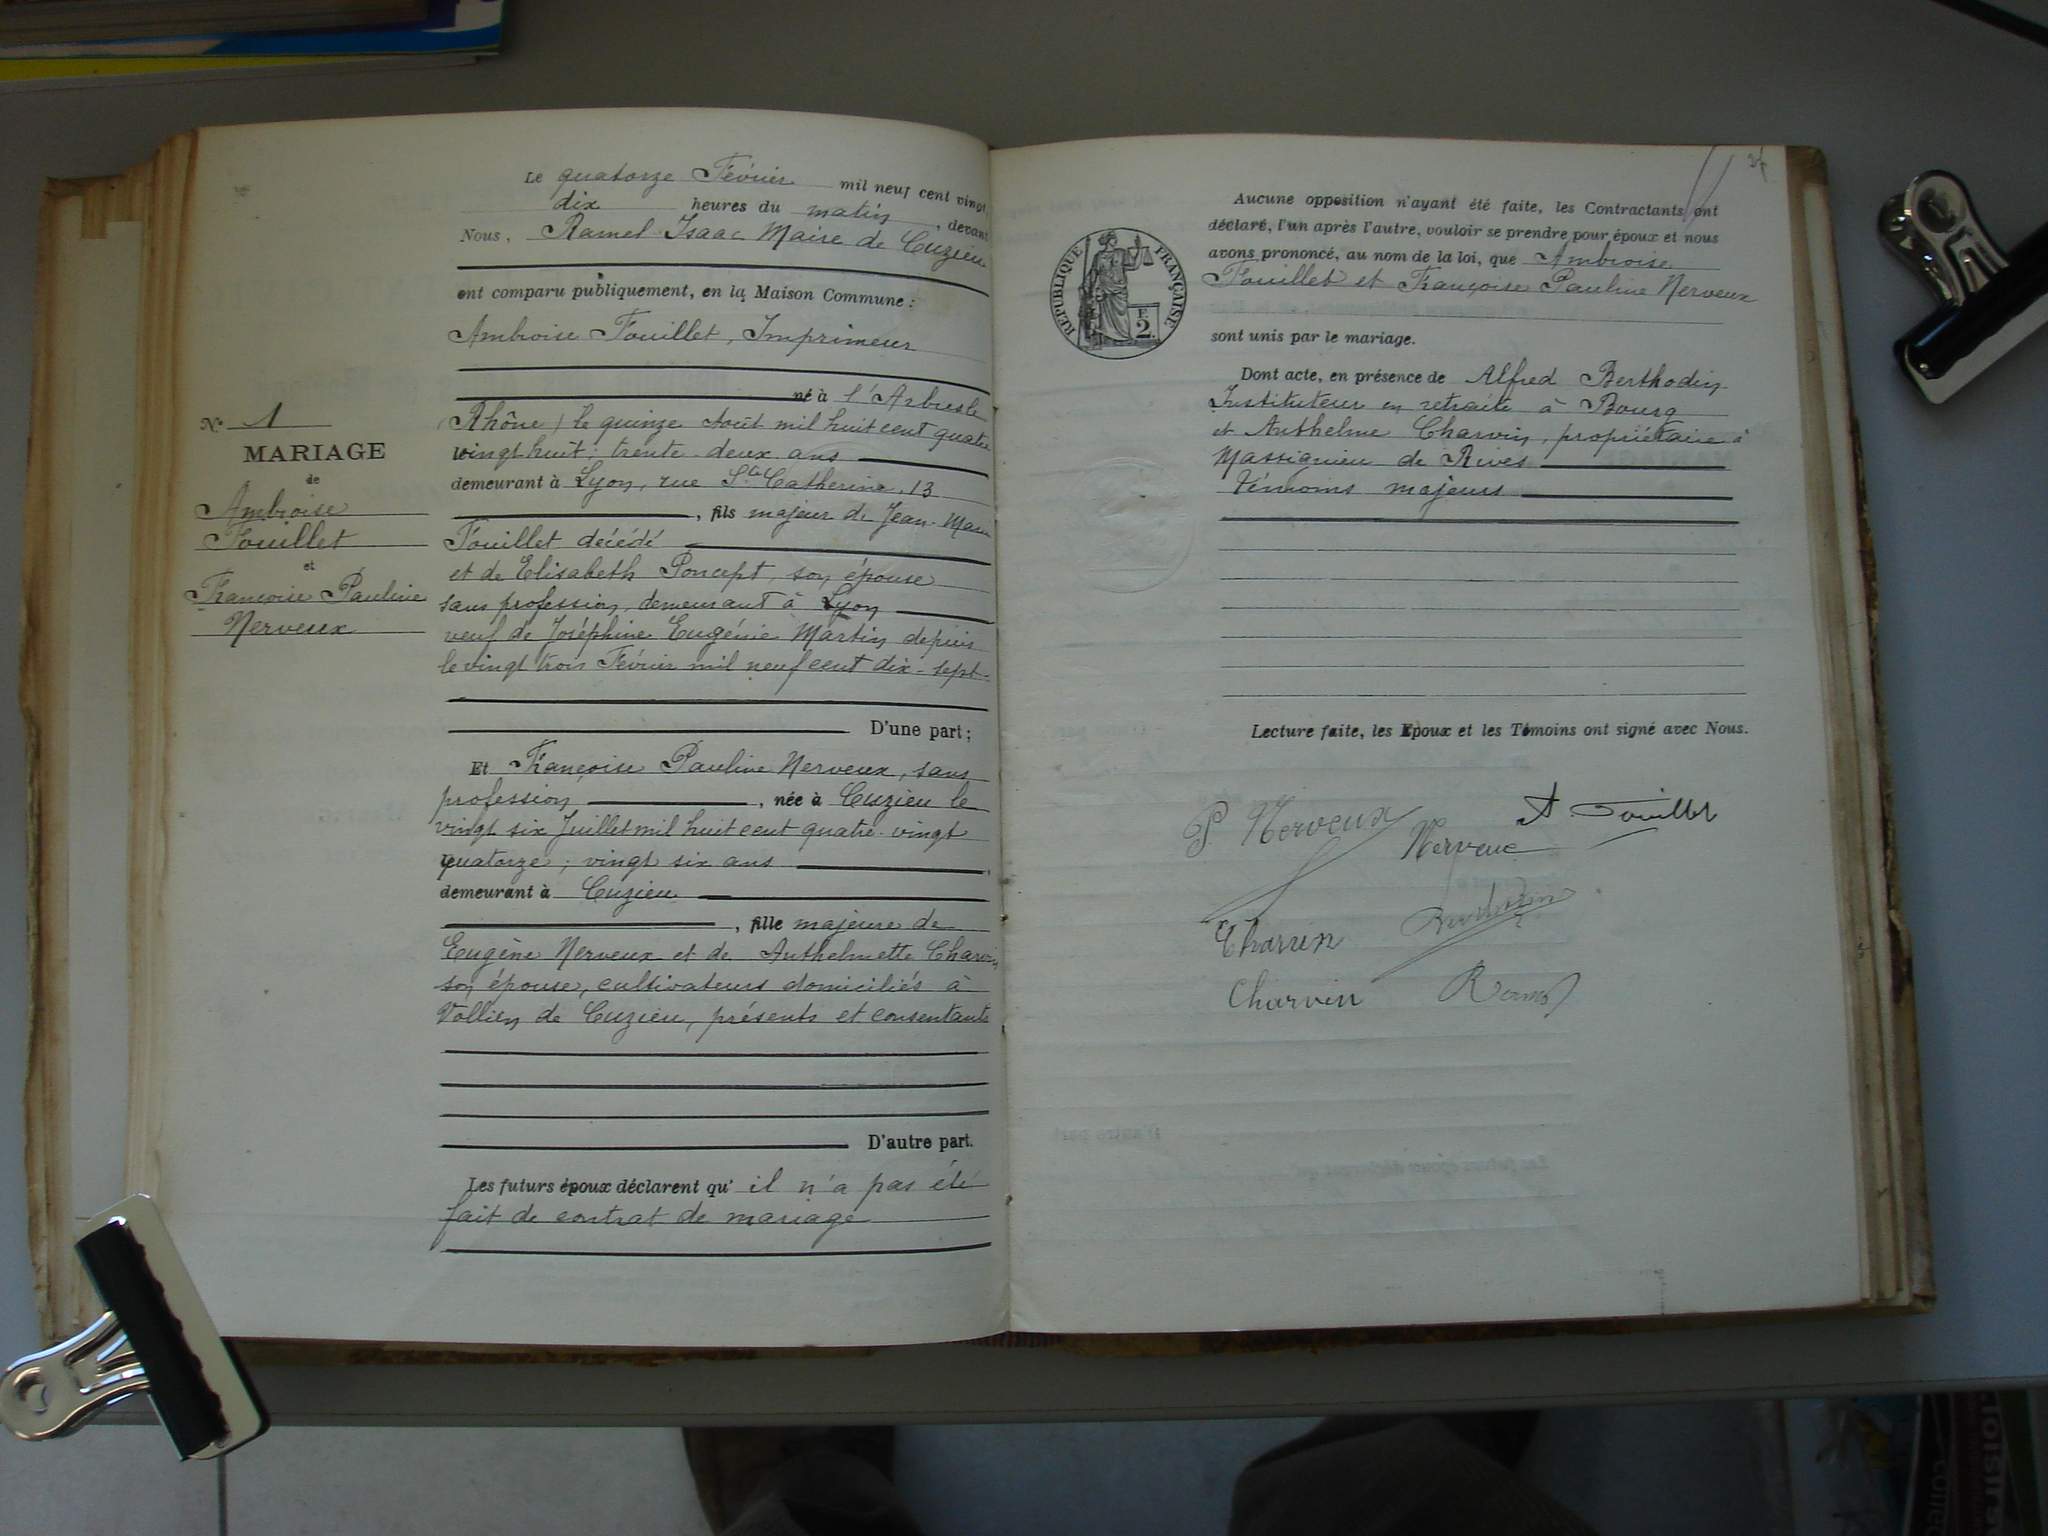 Le quatorze Février mil neuf cent vingt
dix heures du matin, devant
Nous, Ramel Isaac Maire de Cuzieu
ont comparu publiquement, en la Maison Commune :
Ambroise Fouillet, Imprimeur
né à l'Arbresle
(Rhône) le quinze Août mil huit cent quatre
vingt huit ; trente-deux ans
demeurant à Lyon, rue Ste Catherine, 13
, fils majeur de Jean-Marie
Fouillet décédé
et de Elisabeth Poncept, son épouse
sans profession, demeurant à Lyon
veuf de Joséphine Eugénie Martin depuis
le vingt trois Février mil neuf cent dix-sept
D'une part ;
Et Françoise Pauline Nerveux, sans
profession, née à Cuzieu le
vingt six Juillet mil huit cent quatre-vingt
quatorze ; vingt six ans
demeurant à Cuzieu
, fille majeure de
Eugène Nerveux et de Anthelmette Charvin
son épouse, cultivateurs domiciliés à
Vollien de Cuzieu, présents et consentants
D'autre part.
Les futurs époux déclarent qu'il n'a pas été
fait de contrat de mariage
N° 1
MARIAGE
de
Ambroise
Fouillet
et
Françoise Pauline
Nerveux
RÉPUBLIQUE FRANÇAISE
F.
2
Aucune opposition n'ayant été faite, les Contractants ont
déclaré, l'un après l'autre, vouloir se prendre pour époux et nous
avons prononcé, au nom de la loi, que Ambroise
Fouillet et Françoise Pauline Nerveux
sont unis par le mariage.
Dont acte, en présence de Alfred Berthodin
Instituteur en retraite à Bourg
et Anthelme Charvin, propriétaire à
Massignieu de Rives
témoins majeurs
Lecture faite, les Epoux et les Témoins ont signé avec Nous.
P. Nerveux
A Fouillet
Nerveux
Charvin
Berthodin
Charvin
Ramel